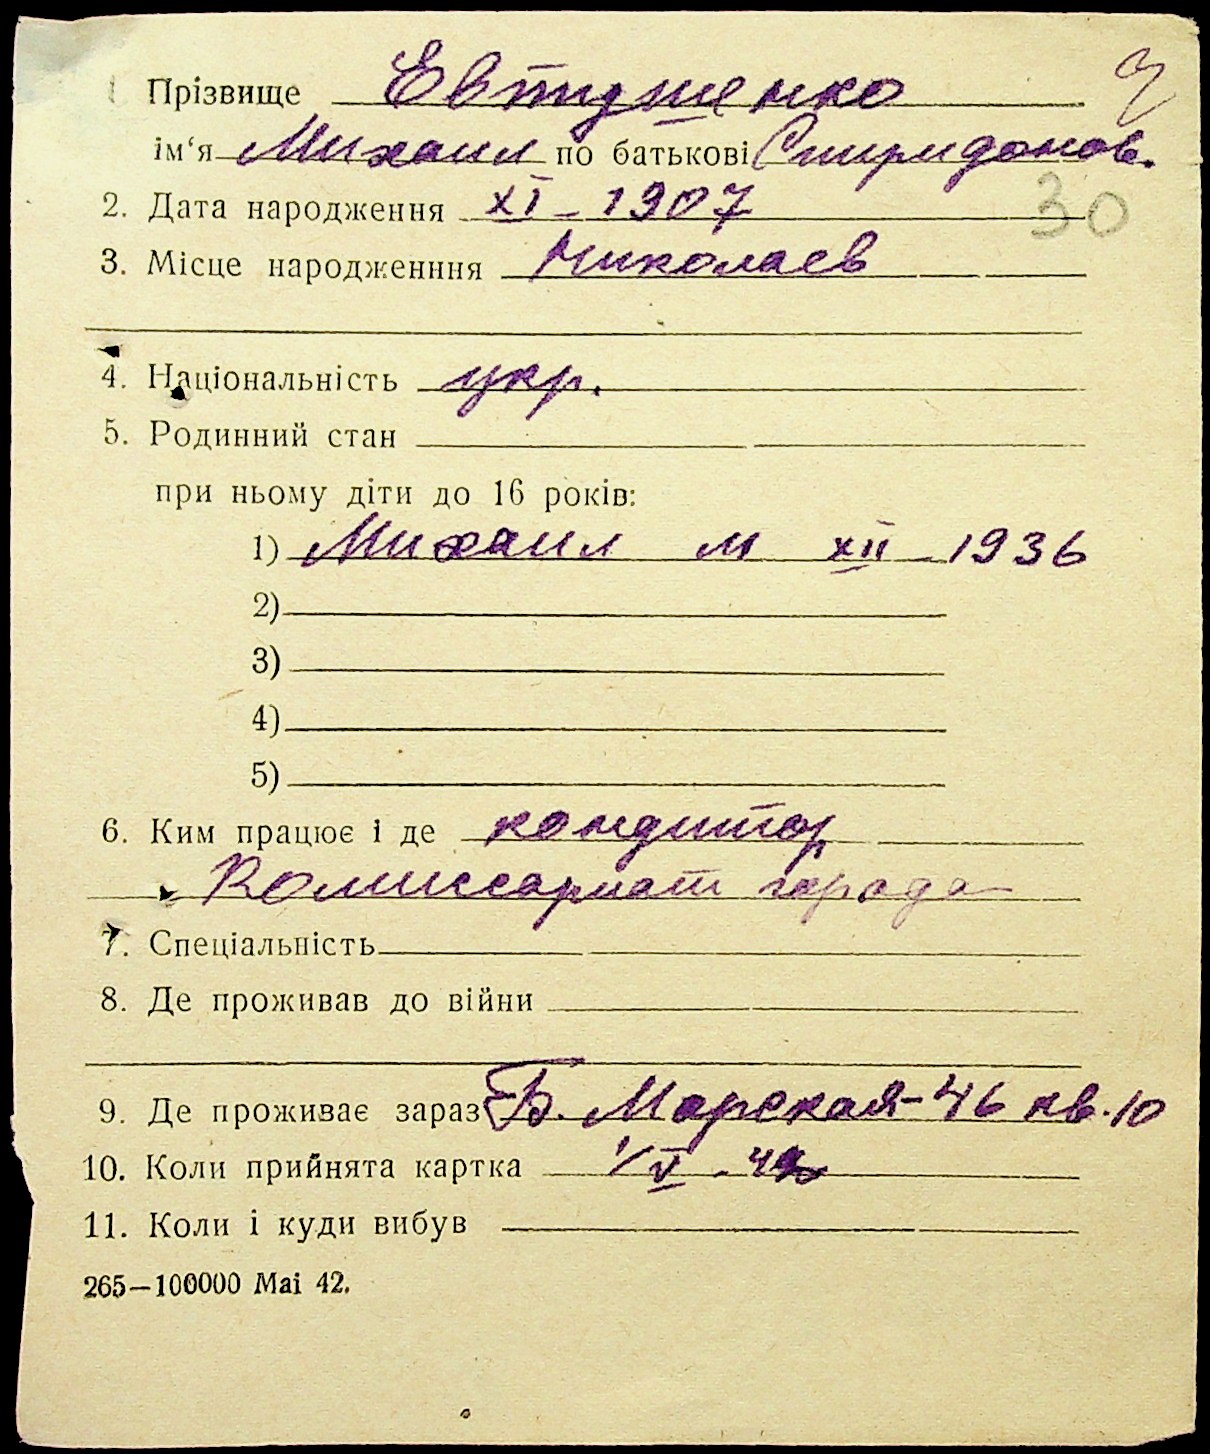 1 Прізвище Евтушенко
ім‘я Михаил по батькові Спиридонов.
2. Дата народження XI – 1907 30
3. Місце народженння Николаев
4. Національність укр.
5. Родинний стан
при ньому діти до 16 років:
1) Михаил м XII – 1936
2)
3)
4)
5)
6. Ким працює і де кондитор
Комиссариат города
7. Спеціальність
8. Де проживав до війни
9. Де проживає зараз Б. Морская – 46 кв. 10
10. Коли прийнята картка 1/V – 42
11. Коли і куди вибув
265—100000 Mai 42.